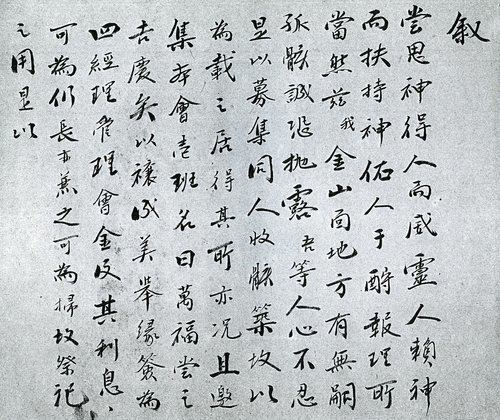 叙
嘗思神得人而威靈人賴神
而扶持神佑人于酧報理所
當然茲我金山面地方有無嗣
孤骸誠恐抛露吾等人心不忍
是以募集同人收骸築坟以
為載之居得其所亦况且邀
集本會壱班名曰萬福嘗之
吉慶矣以禳成美舉缘簽為
四經理管理會金及其利息、
可為仍長亦之可為掃坟祭祀
之用是以